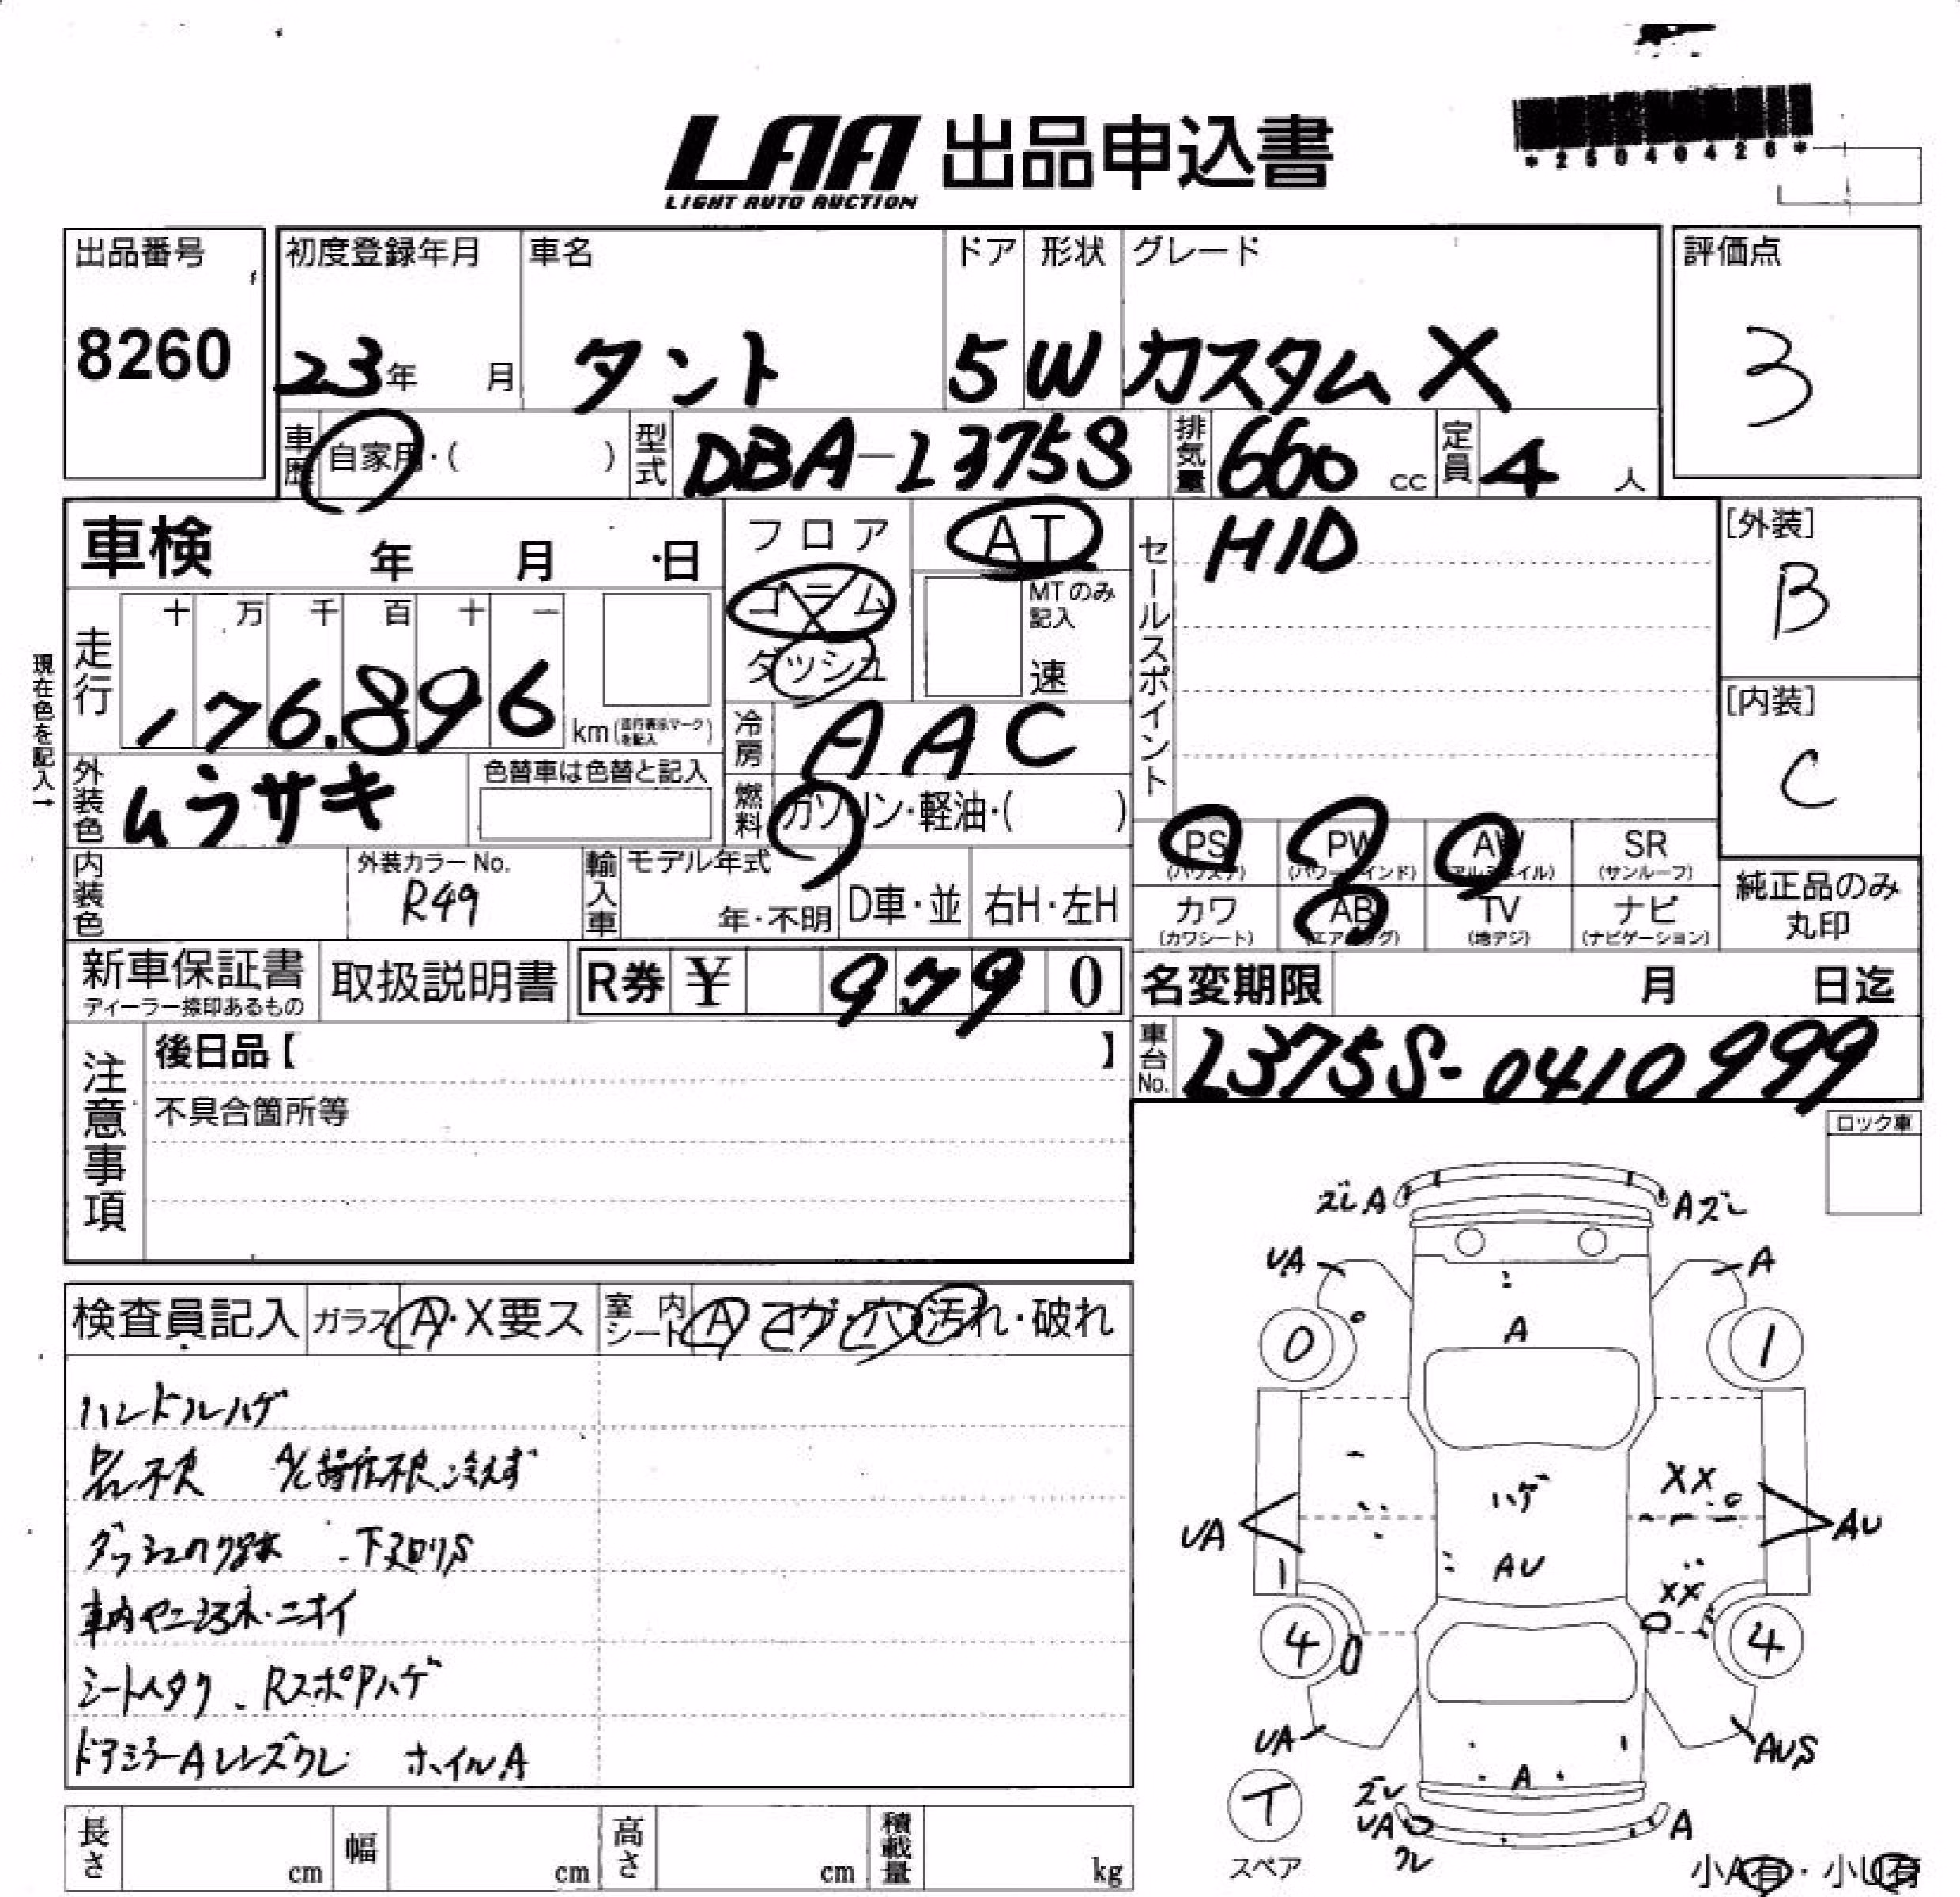 LAA 出品申込書
LIGHT AUTO AUCTION
*25040426*
出品番号
8260
初度登録年月
23年 月
車名
タント
ドア
5
形状
W
グレード
カスタム X
評価点
3
車歴 自家用・( )
型式 DBA-L375S
排気量 660 cc
定員 4 人
車検 年 月 日
フロア
コラム
ダッシュ
AT
MTのみ記入
速
セールスポイント
HID
[外装]
B
[内装]
C
現在色を記入→
走行 十 万 千 百 十 一
176,896 km (走行表示マークを記入)
冷房 AAC
外装色 ムラサキ
色替車は色替と記入
燃料 ガソリン・軽油・( )
PS (パワステ)
PW (パワーウインド)
AW (アルミホイル)
SR (サンルーフ)
カワ (カワシート)
AB (エアバッグ)
TV (地デジ)
ナビ (ナビゲーション)
純正品のみ
丸印
内装色
外装カラーNo.
R49
輸入車 モデル年式
年・不明
D車・並
右H・左H
新車保証書
ディーラー捺印あるもの
取扱説明書
R券 ¥ 9790
名変期限 月 日迄
車台No. L375S-0410999
注意事項
後日品【 】
不具合箇所等
ロック車
検査員記入 ガラス A・X要ス
室内シート A コゲ・穴・汚れ・破れ
ハンドルハゲ
不良 A/C操作不良 冷えず
下廻りS
車内ヤニ汚れ・ニオイ
シートヘタク、RスポPハゲ
ドアミラーA レンズクレ ホイルA
ズレA
Aズレ
UA
A
0
1
A
XX
ハゲ
UA
AU
AU
1
XX
4
4
UA
AUS
T
スペア
ズレ
UA
クレ
A
A
小A有・小U有
長さ cm
幅 cm
高さ cm
積載量 kg